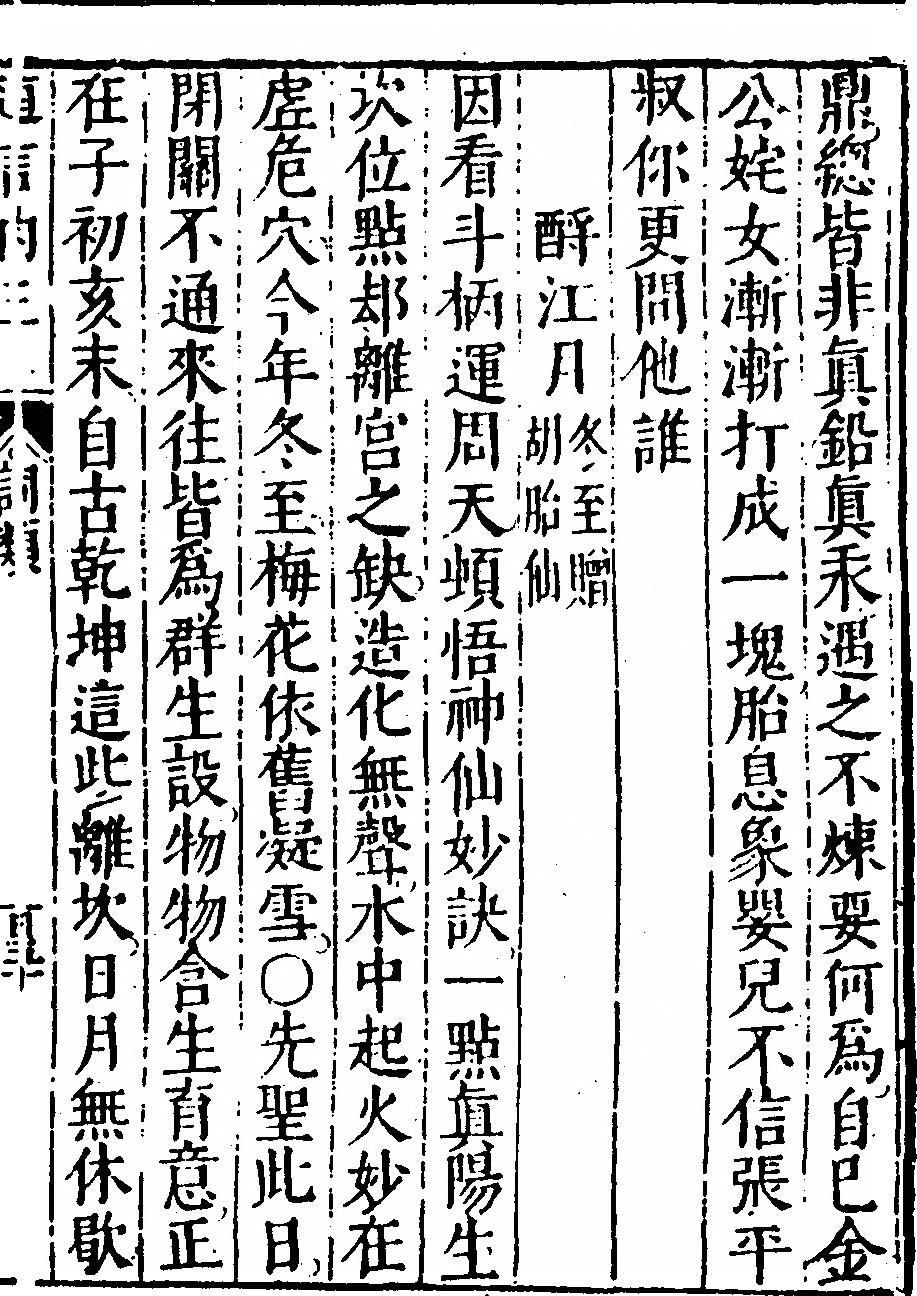 鼎總皆非眞鉛眞汞遇之不煉要何爲自巳金
公姹女漸漸打成一塊胎息象嬰兒不信張平
叔你更問他誰
酹江月冬至贈胡胎仙
因看斗柄運周天頓悟神仙妙訣一點眞陽生
坎位點却離宫之缺造化無聲水中起火妙在
虗危穴今年冬至梅花依舊凝雪〇先聖此日
閉關不通來往皆爲群生設物物含生育意正
在子初亥末自古乾坤這此離坎日月無休歇
詞類